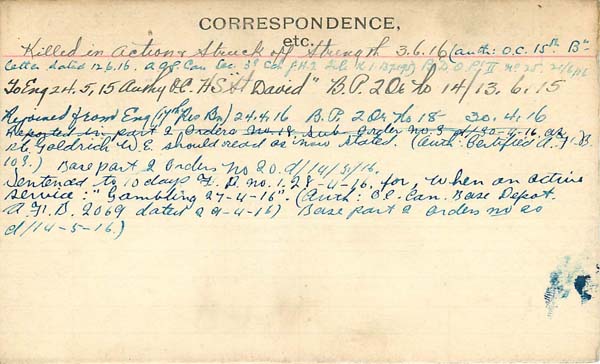 CORRESPONDENCE,
etc.
Killed in action & Struck off Strength 3.6.16 (auth: O.C. 15th Bn
Letter dated 12.6.16. A.G's Can Sec. 3rd
To Eng 24.5.15 Auth O.C. HS "St David" B.P. 2 Or No 14/13.6.15
Rejoined from Eng (17th Res Bn) 24.4.16 B.P. 2 Or No 18 30.4.16
Reported in part 2 Orders No 18. Sub Order No 3 d/30-4-16 as
St Goldrich W E. should read as now stated. (Auth: Certified A.F. B
103.) Base part 2 Orders No 20. d/14/5/16.
Sentenced to 10 days F. P. no. 1. 28-4-16. for, When on active
service. "Gambling 27-4-16". (Auth: O.C. Can. Base Depot.
A.F.B. 2069 dated 29-4-16) Base part 2 Orders no 20
d/14-5-16.)